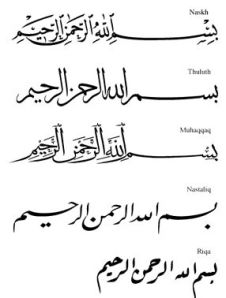 Naskh
بِسْمِ اللهِ الرَّحْمٰنِ الرَّحِيْمِ
Thuluth
بسم الله الرحمن الرحيم
Muhaqqaq
بِسْمِ اللهِ الرَّحْمٰنِ الرَّحِيْمِ
Nastaliq
بسم الله الرحمن الرحیم
Riqa
بسم الله الرحمن الرحيم